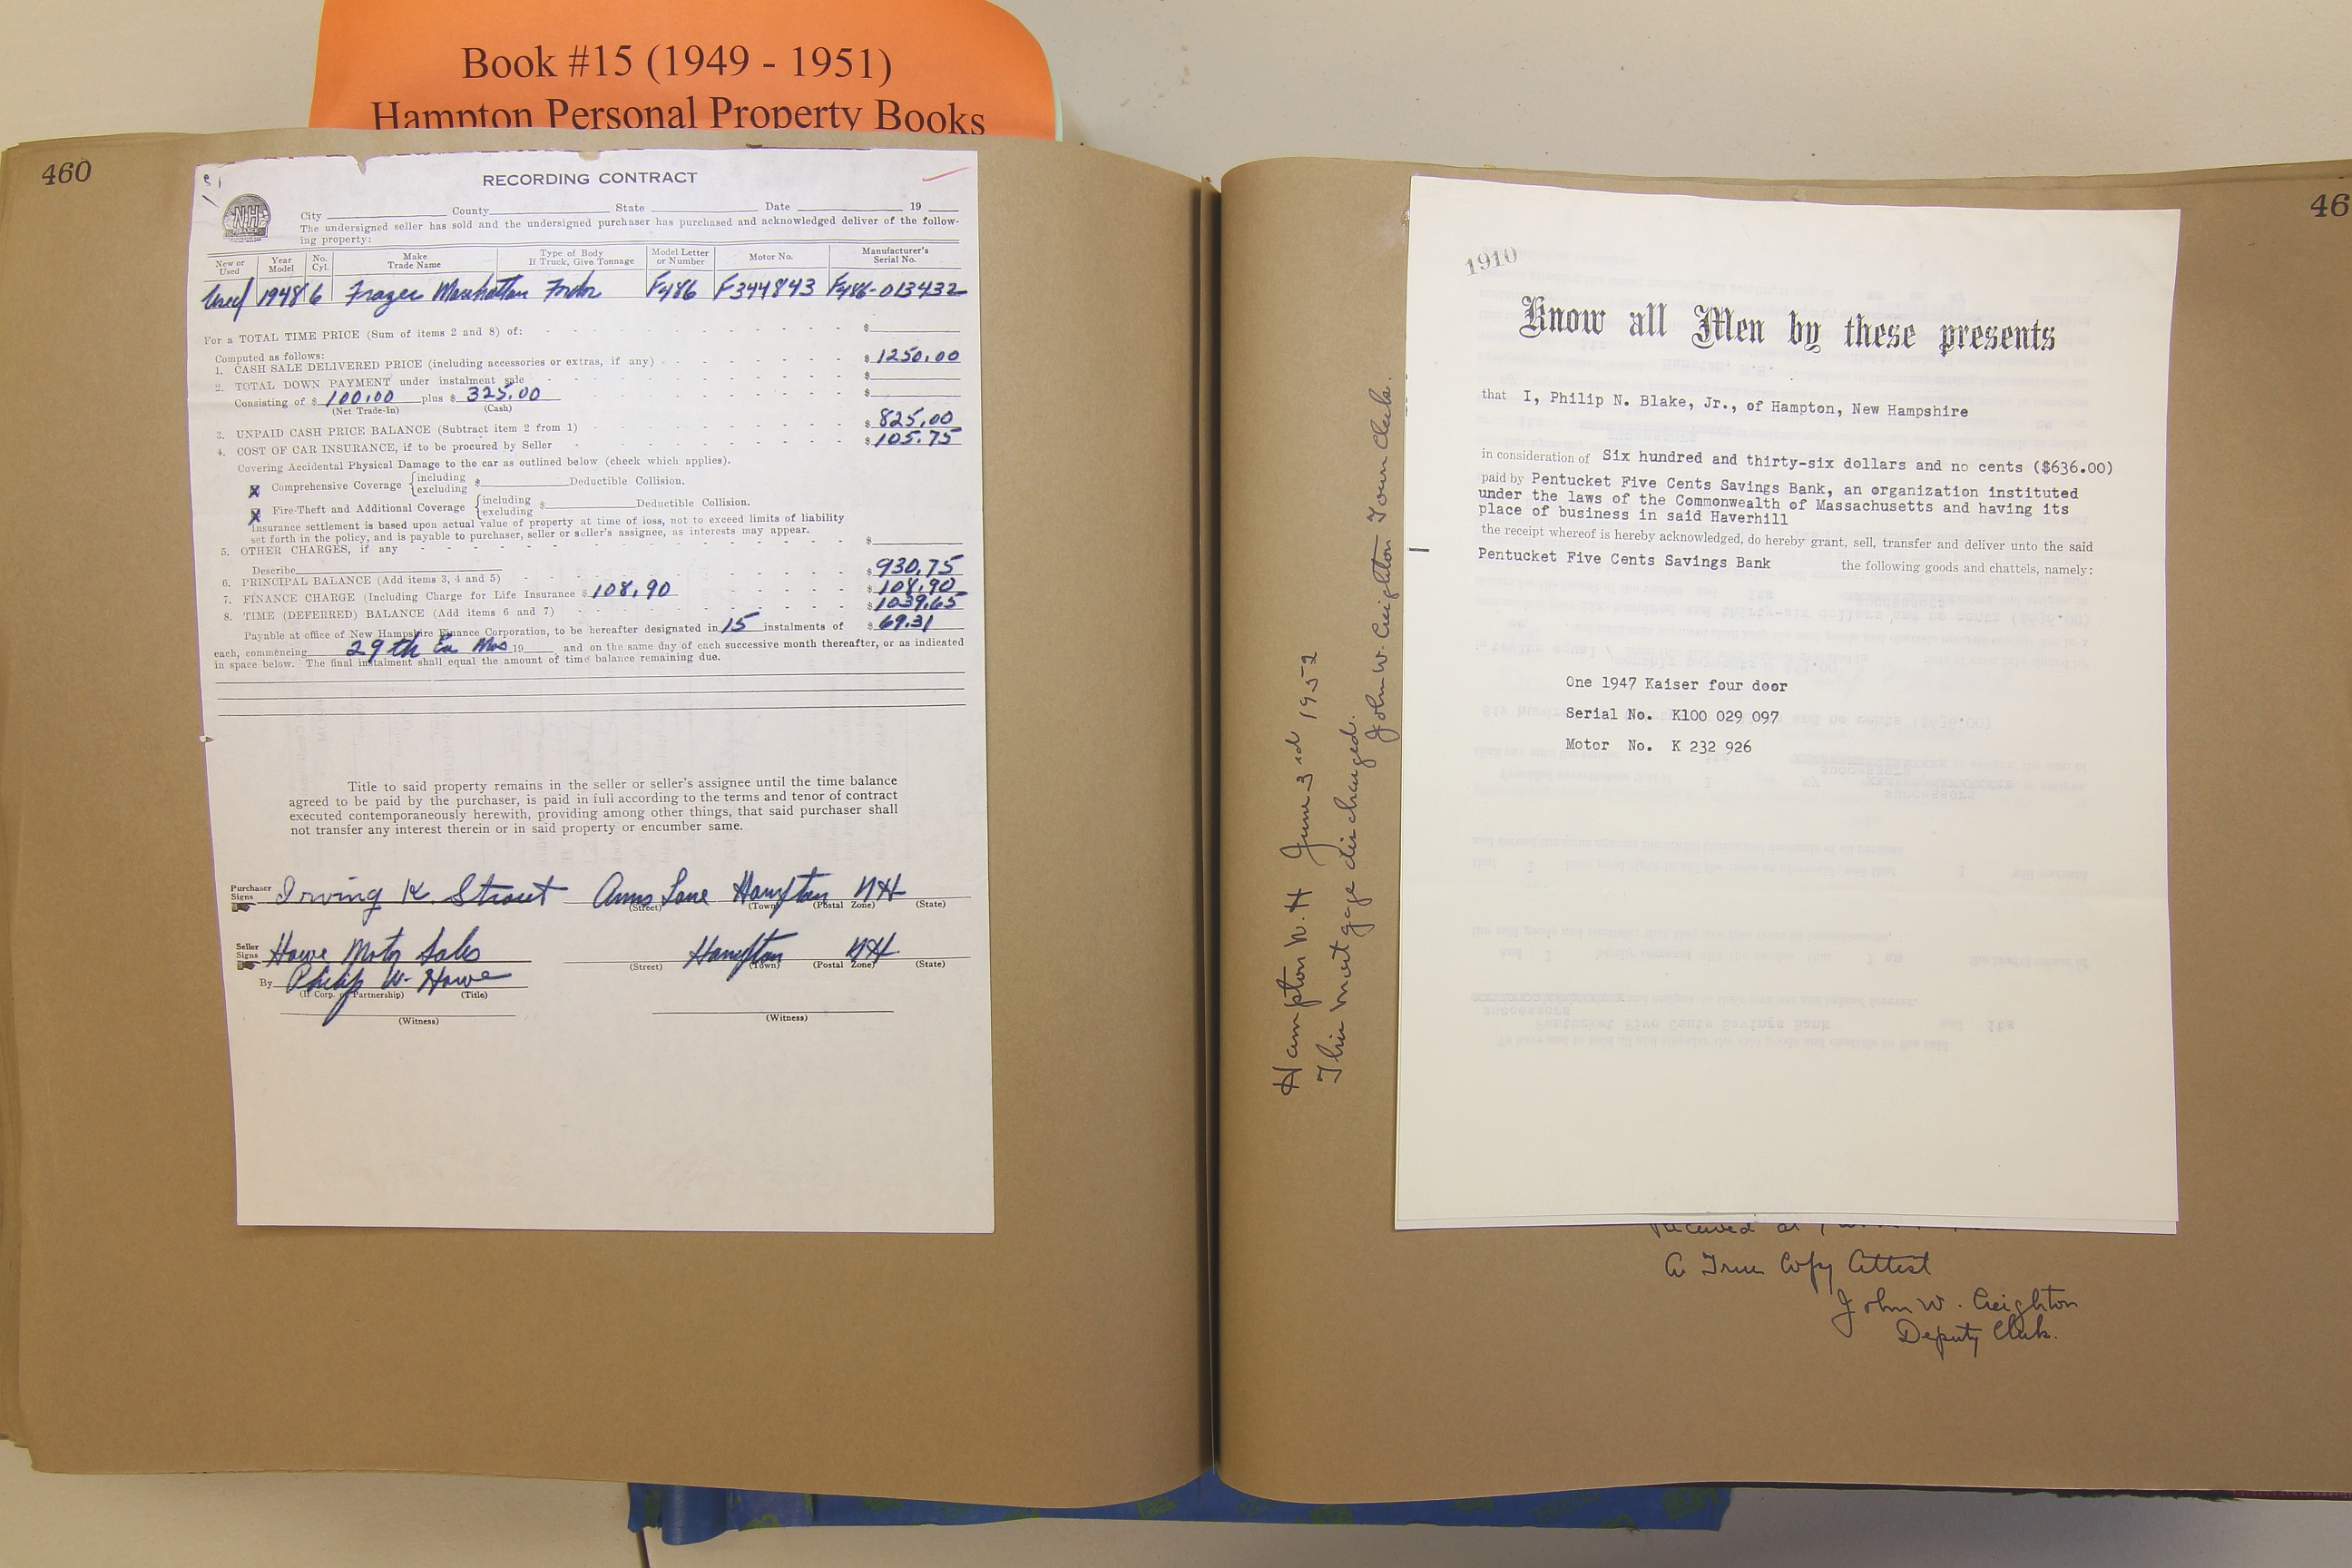 Book #15 (1949 - 1951)
Hampton Personal Property Books
460
RECORDING CONTRACT
NH
City County State Date 19
The undersigned seller has sold and the undersigned purchaser has purchased and acknowledged deliver of the follow-
ing property:
New or Used Year Model No. Cyl. Make Trade Name Type of Body If Truck, Give Tonnage Model Letter or Number Motor No. Manufacturer's Serial No.
Used 1948 6 Frazer Manhattan Fordor F486 F344843 F486-013432
For a TOTAL TIME PRICE (Sum of items 2 and 8) of: $
Computed as follows:
1. CASH SALE DELIVERED PRICE (including accessories or extras, if any) $ 1250.00
2. TOTAL DOWN PAYMENT under instalment sale $
Consisting of $ 100.00 plus $ 325.00 $
(Net Trade-In) (Cash)
3. UNPAID CASH PRICE BALANCE (Subtract item 2 from 1) $ 825.00
4. COST OF CAR INSURANCE, if to be procured by Seller $ 105.75
Covering Accidental Physical Damage to the car as outlined below (check which applies).
X Comprehensive Coverage {including excluding $ Deductible Collision.
X Fire-Theft and Additional Coverage {including excluding $ Deductible Collision.
Insurance settlement is based upon actual value of property at time of loss, not to exceed limits of liability
set forth in the policy, and is payable to purchaser, seller or seller's assignee, as interests may appear.
5. OTHER CHARGES, if any $
Describe
6. PRINCIPAL BALANCE (Add items 3, 4 and 5) $ 930.75
7. FINANCE CHARGE (Including Charge for Life Insurance $ 108.90 $ 108.90
8. TIME (DEFERRED) BALANCE (Add items 6 and 7) $ 1039.65
Payable at office of New Hampshire Finance Corporation, to be hereafter designated in 15 instalments of $ 69.31
each, commencing 29th Ea Mos 19 and on the same day of each successive month thereafter, or as indicated
in space below. The final instalment shall equal the amount of time balance remaining due.
Title to said property remains in the seller or seller's assignee until the time balance
agreed to be paid by the purchaser, is paid in full according to the terms and tenor of contract
executed contemporaneously herewith, providing among other things, that said purchaser shall
not transfer any interest therein or in said property or encumber same.
Purchaser Signs Irving K. Strout Anns Lane Hampton NH
(Street) (Town) (Postal Zone) (State)
Seller Signs Howe Motor Sales Hampton NH.
(Street) (Town) (Postal Zone) (State)
By Philip W. Howe
(If Corp. or Partnership) (Title)
(Witness) (Witness)
46
Hampton N. H June 3rd 1952
This mortgage discharged.
John W. Creighton Town Clerk.
1910
Know all Men by these presents
that I, Philip N. Blake, Jr., of Hampton, New Hampshire
in consideration of Six hundred and thirty-six dollars and no cents ($636.00)
paid by Pentucket Five Cents Savings Bank, an organization instituted
under the laws of the Commonwealth of Massachusetts and having its
place of business in said Haverhill
the receipt whereof is hereby acknowledged, do hereby grant, sell, transfer and deliver unto the said
Pentucket Five Cents Savings Bank the following goods and chattels, namely:
One 1947 Kaiser four door
Serial No. K100 029 097
Motor No. K 232 926
Received at
A True Copy Attest
John W. Creighton
Deputy Clerk.